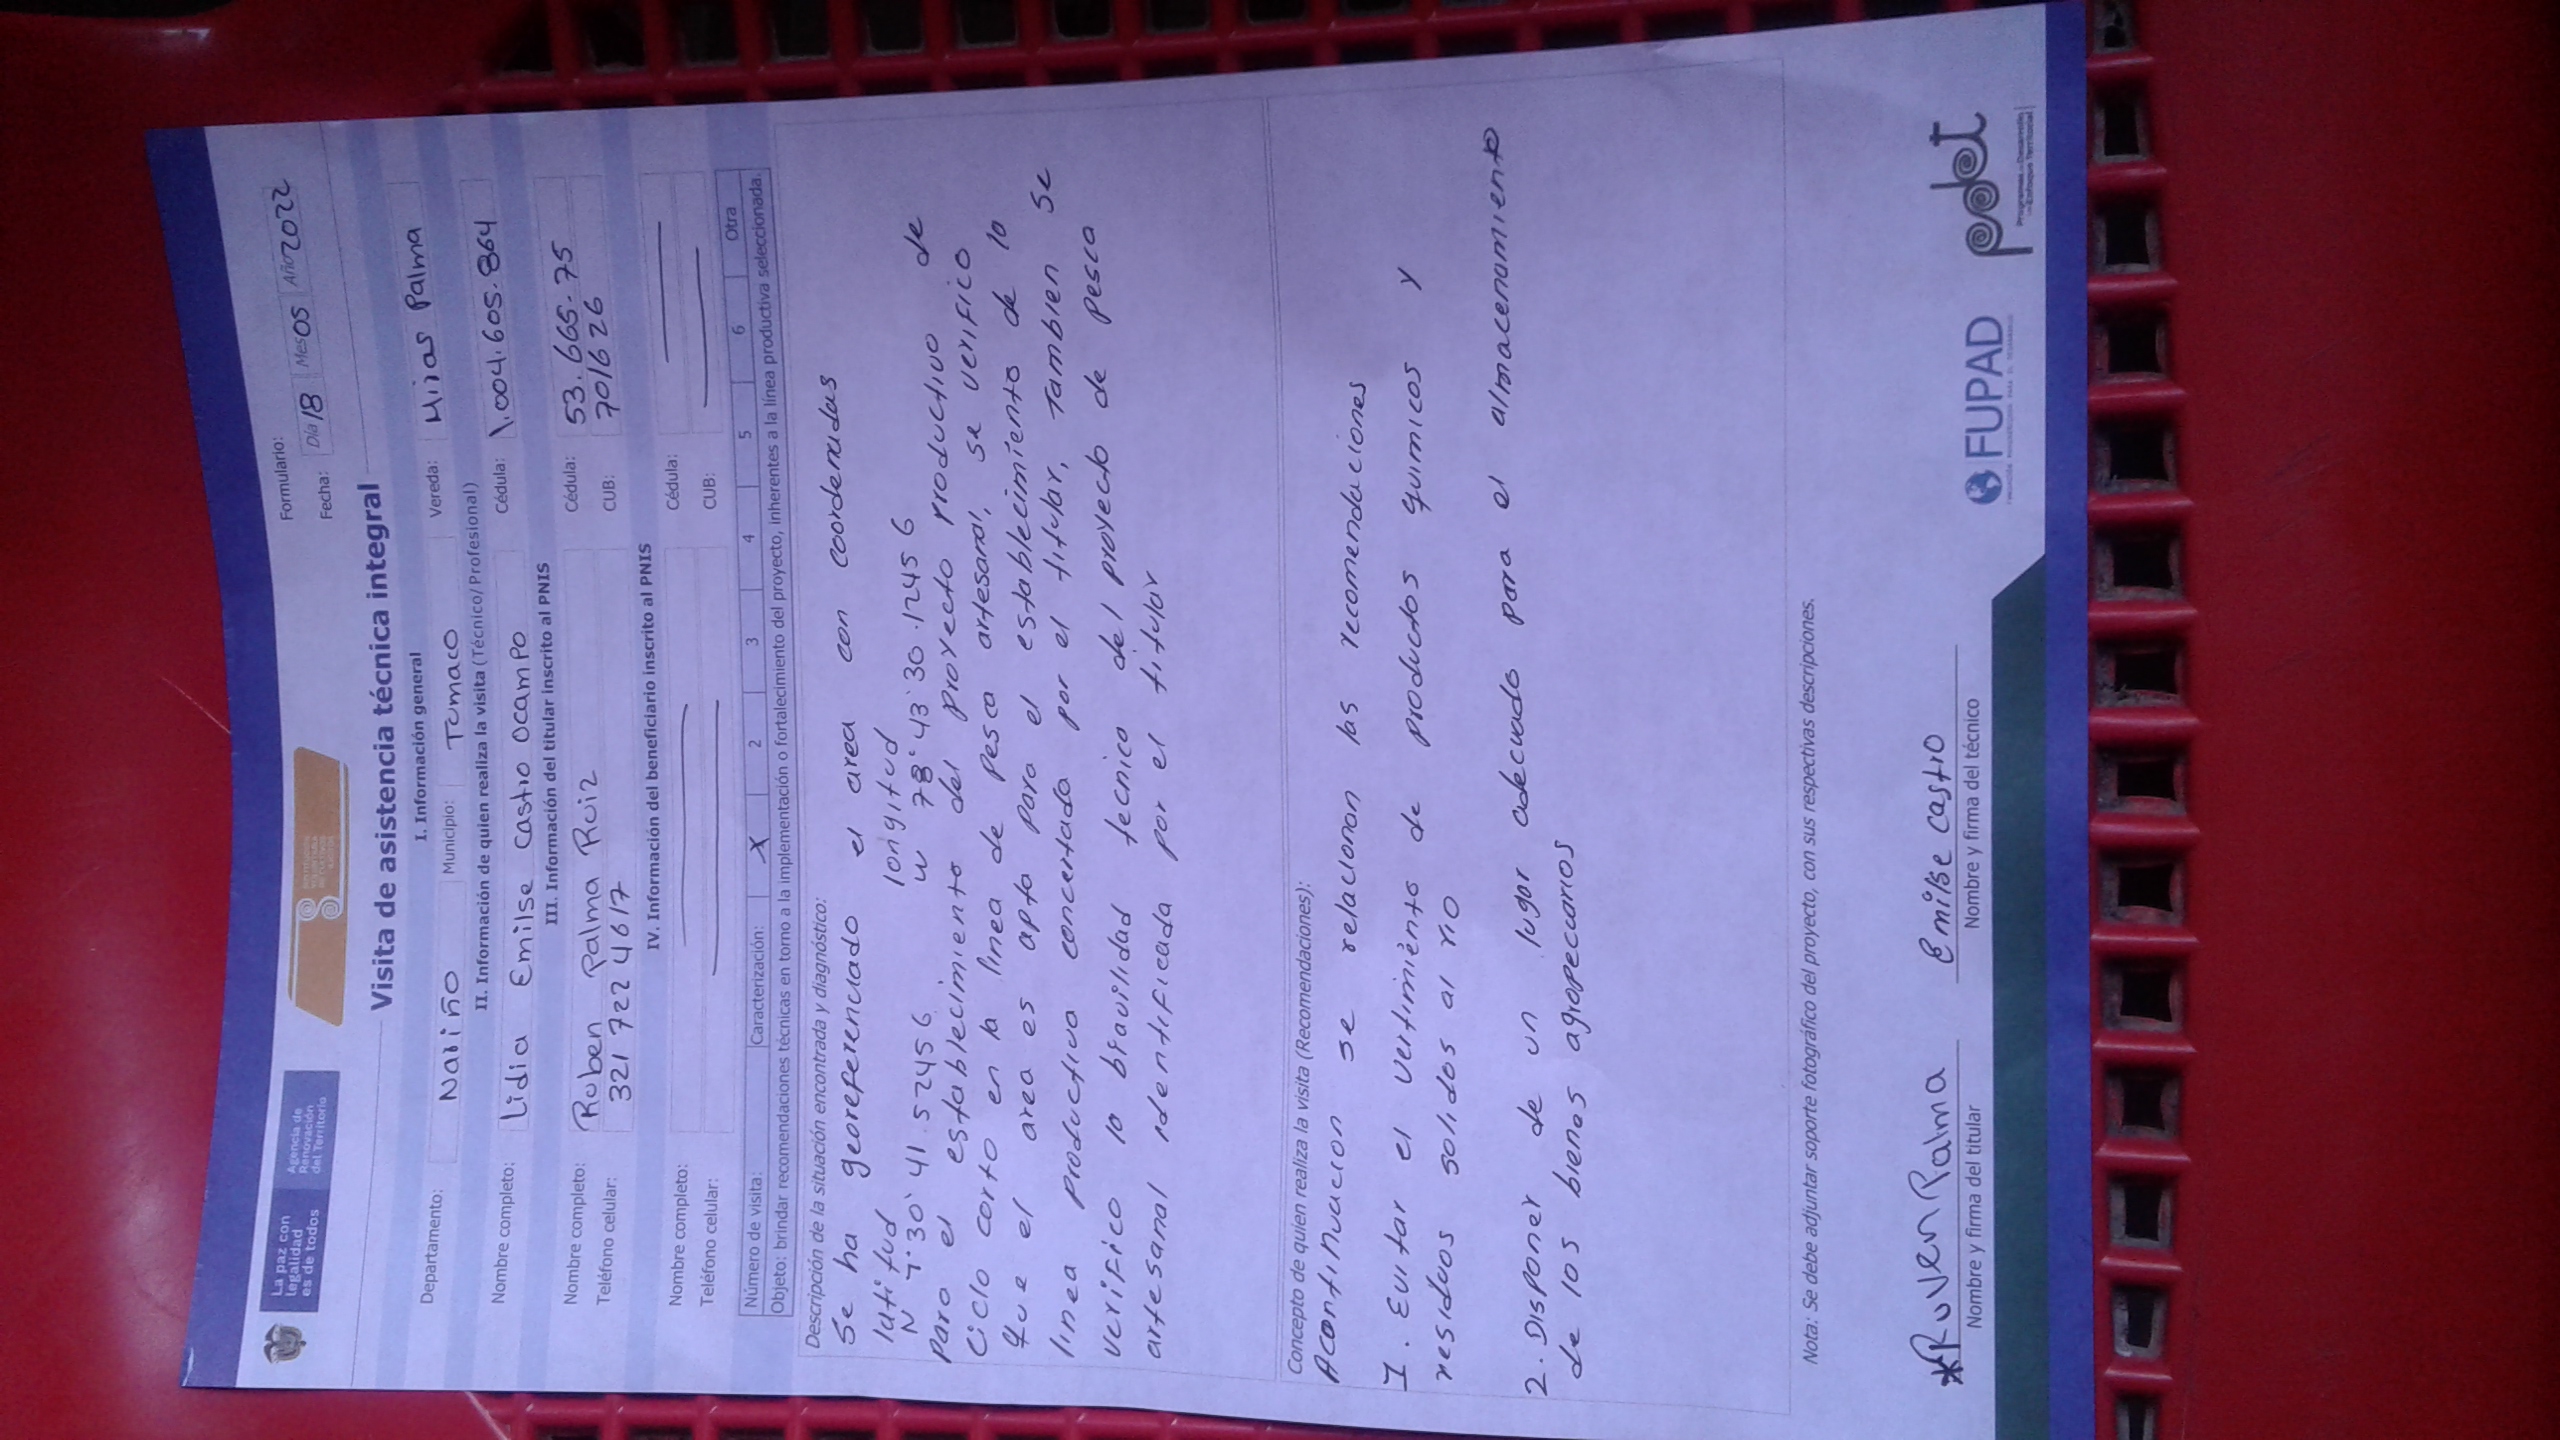 La paz con
legalidad
es de todos
Agencia de
Renovación
del Territorio
Formulario:
Fecha: Día 18 Mes 05 Año 2022
Visita de asistencia técnica integral
I. Información general
Departamento: Nariño Municipio: Tumaco Vereda: Miras Palma
II. Información de quien realiza la visita (Técnico/ Profesional)
Nombre completo: Lidia Emilse Castro Ocampo Cédula: 1.004.605.864
III. Información del titular inscrito al PNIS
Nombre completo: Ruben Palma Ruiz Cédula: 53.665.75
Teléfono celular: 321 722 4617 CUB: 701626
IV. Información del beneficiario inscrito al PNIS
Nombre completo: Cédula:
Teléfono celular: CUB:
Número de visita: Caracterización: X 2 3 4 5 6 Otra
Objeto: brindar recomendaciones técnicas en torno a la implementación o fortalecimiento del proyecto, inherentes a la línea productiva seleccionada.
Descripción de la situación encontrada y diagnóstico:
Se ha georeferenciado el area con coordenadas
latitud longitud
30' 41.52456 W 78° 43' 30.12456
para el establecimiento del proyecto productivo de
Ciclo corto en la linea de pesca artesanal, se verifico
que el area es apta para el establecimiento de lo
linea productiva concertada por el titular, tambien se
verifico la biavilidad tecnica del proyecto de pesca
artesanal identificada por el titular
Concepto de quien realiza la visita (Recomendaciones):
Acontinuacion se relacionan las recomendaciones
1. Evitar el vertimiento de productos quimicos y
residuos solidos al rio
2. Disponer de un lugar adecuado para el almacenamiento
de los bienes agropecuarios
Nota: Se debe adjuntar soporte fotográfico del proyecto, con sus respectivas descripciones.
Ruven Palma Emilse Castro
Nombre y firma del titular Nombre y firma del técnico
FUPAD
pdet